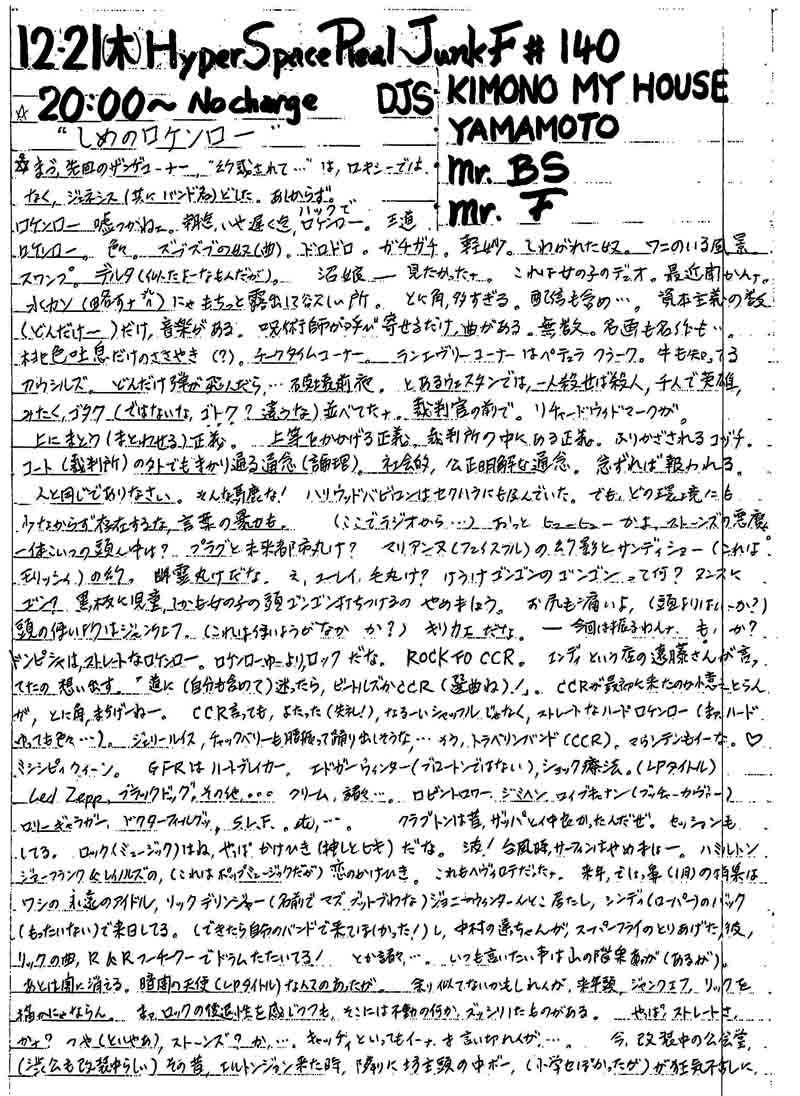 12.21(木) Hyper Space Real Junk F # 140
☆ 20:00~ No charge DJS・KIMONO MY HOUSE
・YAMAMOTO
・Mr. BS
・Mr. F
"しめのロケンロー"
☆まず、先回のザンゲコーナー、"幻惑されて…"は、ロキシーでは
なく、ジェネシス(共にバンド名)でした。あしからず。
ロケンロー 嘘つかねェ。 いや遅く 、バックでロケンロー。 王道
ロケンロー。色々。ズブズブの奴(曲)。ドロドロ。ガチガチ。軽妙。しわがれた奴。ワニのいる風景。
スワンプ。デルタ(似たよーなもんだが)。 沼姫 ― 見たかったナ。これは女の子のデュオ。最近聞かんナ。
とに角、多すぎる。配信も含め…。資本主義の数
(どんだけー)だけ、音楽がある。呪術師が呼び寄せるだけ、曲がある。無数。名画も名作も…。
桃色吐息だけのささやき(?)。チークタイムコーナー。 ランエヴリーコーナーはペチュラ クラーク。牛も知ってる
カウシルズ。どんだけ弾が飛んだら、… 前夜。とあるウェスタンでは、一人殺せば殺人、千人で英雄、
みたく、ゴタク(ではないな、ゴトク?違うな)並べてたナ。裁判官の前で。リチャードウィドマークが。
上にまとう(まとわせる)正義。 上等でかかげる正義。裁判所の中にある正義。ふりかざされるコブチ。
コート(裁判所)の外でもまかり通る通念(論理)。社会的、公正明解な通念。念ずれば報われる。
人と同じでありなさい。そんな馬鹿な! ハリウッドバビロンはセクハラにも及んでいた。でも、どの環境にも
少なからず存在するな、言葉の暴力も。 (ここでラジオから…) おっと ヒューヒューかよ、ストーンズの悪魔。
一体こいつの頭ん中は? プラグと未来都市丸け? マリアンヌ(フェイスフル)の幻影とサンディショー(これは
モリッシィ)の幻。 幽霊丸けだな。え、ユーレイ、毛丸け?けうけゴンゴンのゴンゴンって何?タンスに
ゴン? 黒板に児童、しかも女の子の頭ゴンゴン打ちつけるの やめましょう。 お尻も痛いよ、(頭よりはいーか?)
頭の使い所はジャンクエフ。(これは使いようがなか か?) キリカエだな。 ― 今回は振るわんナ。も、か?
ドンピシャは、ストレートなロケンロー。ロケンローゆーより、ロックだな。ROCK FO CCR。 エンディという店の遠藤さんが言っ
てたの 想い出す。「道に(自分も含めて)迷ったら、ビートルズかCCR(選曲ね)!」。 CCRが最初に来たのか憶えとらん
が、とに角、まちげーねー。 CCR言っても、よたった(失礼!)、なるーいシャッフルじゃなく、ストレートなハードロケンロー(まァハード
ゆっても色々…)。ジェリールイス、チャックベリーも 踊り出しそうな…。そう、トラベリンバンド(CCR)。マウンテンもイーな。♡
ミシシピィクィーン。 GFRは ハートブレイカー。 エドガーウィンター(ブロートンではない)、ショック療法。(LPタイトル)
Led Zepp、ブラックドッグ、その他、… クリーム、諸々…。 ロビントロワー、ジミヘン、ロイブキャナン(ブッチャーカヴァー)
ロリーギャラガー、ドクターフィールグッ、S.L.F.、etc、…。 クラプトンは昔、ザッパと仲良かったんだぜ。セッションも
してる。 ロック(ミュージック)はね、やっぱ かけひき(押しとヒキ)だな。波!台風時、サーフィンはやめましょー。ハミルトン
ジョーフランク&レイノルズの、(これはポップミュージックだが)恋のかけひき。これもヘヴィロテだったナ。 来年、
ワシの 永遠のアイドル、リックデリンジャー(名前で マズ、ブットブわな)ジョニーウィンターんとこ居たし、シンディ(ローパー)のバック
(もったいない)で来日してる。(できたら自分のバンドで来てほしかった!)し、中村の通ちゃんが、スーパーフライのとりあげた彼、
リックの曲、R&Rフーチークーでドラムたたいてる! とか諸々…。 いつも言いたい事は山の あが(あるが)。
あとは闇に消える。暗闇の天使(LPタイトル)なんてのあったが。 余り似てないかもしれんが、来年頭、ジャンクエフ、リックを
描かにゃならん。まァ、ロックの後退性を感じつつも、そこには不動の何か、ズッシリしたものがある。 やっぱ、ストレートさ、
かナ? つや(といやぁ)、ストーンズ?か、…。キャッチィといってもイーナ。 言い切れんが…。 今、改装中の公会堂、
(渋公も改装中らしい) その昔、エルトンジョン来た時、隣りに坊主頭の中ボー、(小学生ぽかったが)が狂気不しに、